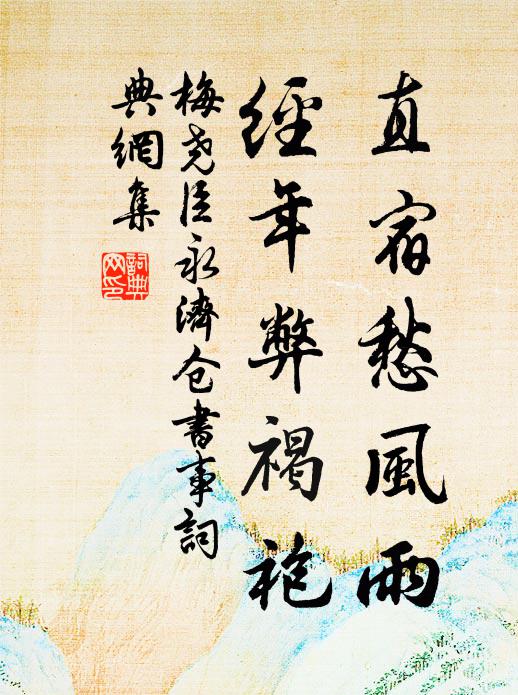 直宿愁風雨
經年弊褐袍
梅堯臣永濟仓書事詞
典網集
詞典網印